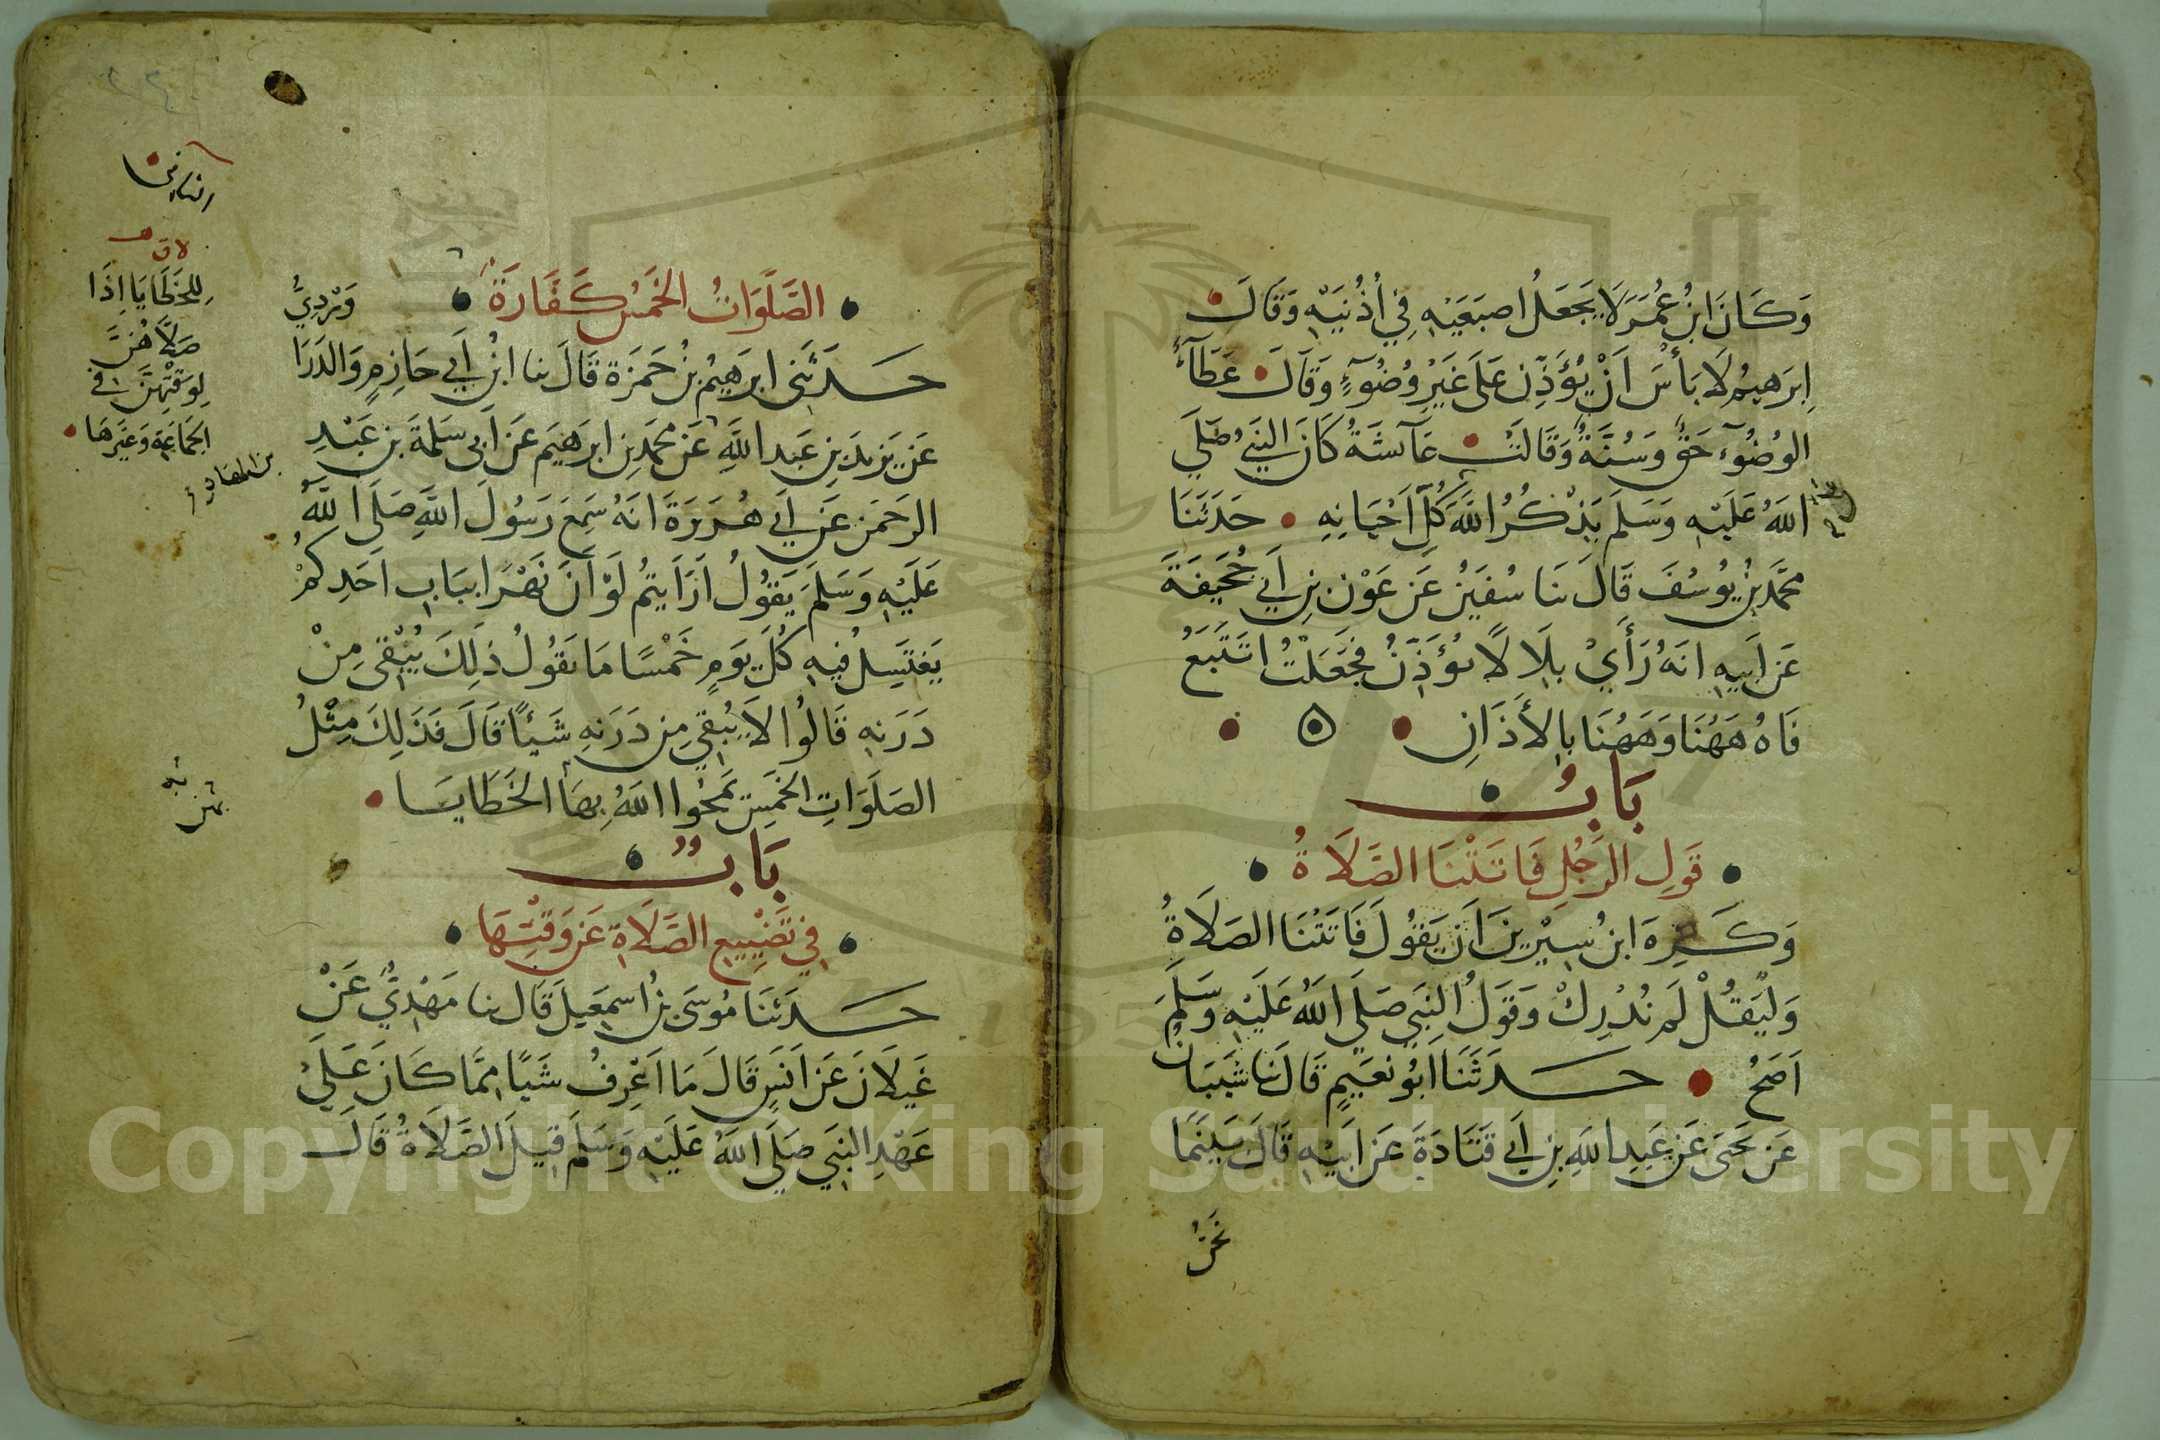 وَكَانَ ابْنُ عُمَرَ لَا يَجْعَلُ اصبَعَيْهِ فِي أُذُنَيْهِ وَقَالَ
اِبرَهِيمُ لَا بَأْسَ اَنْ يُؤَذِّنَ عَلَى غَيْرِ وُضُوءٍ وَقَالَ عَطَآءُ
الوُضُوءُ حَقٌّ وَسُنَّةٌ وَقَالَتْ عَآئشَةُ كَانَ النَّبِيُّ صَلَّى
اللهُ عَلَيْهِ وَسَلَّمَ يَذْكُرُ اللَّهَ كُلَّ اَحْيَانِهِ حَدَّثَنَا
مُحَمَّدُ بْنُ يُوسُفَ قَالَ نَنَا سُفيَنُ عَن عَوْنِ بْنِ اَبِي جُحَيفَةَ
عَن اَبِيهِ انَّهُ رَأَى بِلَالًا يُؤَذِّنُ فَجَعَلْتُ اتَتَبَّعُ
فَاهُ هَهُنَا وَهَهُنَا بِالأَذَانِ
بَابُ
قَولِ الرَّجُلِ فَاتَتْنَا الصَّلَاةُ
وَكَرِهَ ابنُ سِيْرِينَ اَن يَقُولَ فَاتَتْنَا الصَلَاةُ
وَلْيَقُلْ لَم نُدْرِكْ وَقَولُ النَّبِيِّ صَلَى اللهُ عَلَيْهِ وَسَلَّمَ
اَصَحُّ حَدَثَنَا ابُو نعَيمٍ قَالَ نَنا شَيبَانُ
عَن يَحيَى عَن عَبدِ اللهِ بنِ اَبِي قَتَادَةَ عَن اَبِيْهِ قَالَ بَينَمَا
نَحْنُ
الصَّلَوَاتُ الخَمْسُ كَفَّارَةٌ
حَدثَنِى ابرَهِيْمُ بنُ حَمزَة قَالَ ننا ابْنُ اَبِي حَازِمٍ وَالدَرَا
وَرْدِيُّ
عَن يَزيدَ بنِ عَبدِ اللَّهِ عَن محمَّدِ بنِ ابرَهيَم عَن اَبى سَلمَةَ بنِ عَبْدِ
الرحمَن عَن اَبِي هُرَيرَةَ انَهُ سَمِعَ رَسُولَ اللَّهِ صَلَى اللَّهُ
عَلَيْهِ وَسَلمَ يَقُولُ اَرَاَيتُم لَوْ اَنَّ نَهْرًا بِبَابِ اَحَدِكُمْ
يَغتَسِلُ فيهِ كُلَّ يَومٍ خَمْسًا مَا تقُولُ ذلِكَ يُبْقى مِنْ
دَرَنِهِ قَالُوا لاَ يُبقِي مِن دَرَنِهِ شَيئًا قَالَ فَذلِكَ مِثْلُ
الصَلَوَاتِ الخَمِسِ يَمحُوا اللهُ بِهَا الخَطَايَا
بَابٌ
فِي تَضيِيعِ الصَّلَاةِ عَن وَقْتِهَا
حَدثَنَا مُوسَى بنُ اسمعِيلَ قَالَ ننا مَهْدِيٌّ عَنْ
غَيلَانَ عَن اَنَسٍ قَالَ مَا اَعْرِفُ شَيًا مِمَّا كَانَ عَلَى
عَهْدِ النَّبِيِّ صَلَى اللهُ عَلَيْهِ وَسَلمَ قِيلَ الصَّلَاةُ قَالَ
لِلخَطَايَا اِذَا
صَلَّاهُنَّ
لِوَقتِهِنَّ فى
الجَمَاعَةِ وَغيرِهَا
Copyright © King Saud University